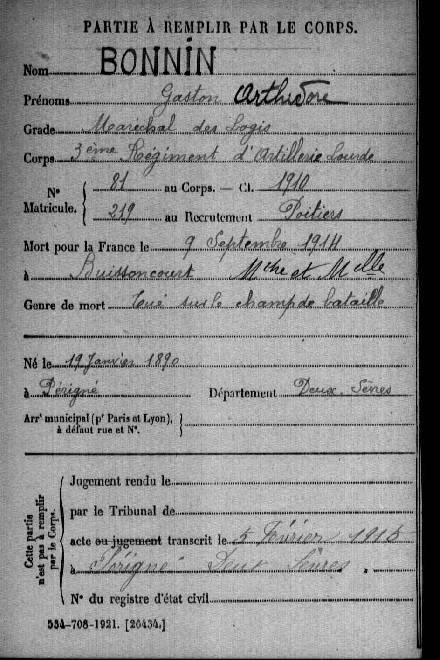 PARTIE À REMPLIR PAR LE CORPS.
Nom BONNIN
Prénoms Gaston Arthedore
Grade Maréchal des Logis
Corps 3ème Régiment d'Artillerie Lourde
N° Matricule. { 81 au Corps. — Cl. 1910
219 au Recrutement Poitiers
Mort pour la France le 9 Septembre 1914
à Buissoncourt Mthe et Mlle
Genre de mort Tué sur le champ de bataille
Né le 19 Janvier 1890
à Périgné Département Deux-Sèvres
Arrt municipal (pr Paris et Lyon), à défaut rue et N°. }
Cette partie n'est pas à remplir par le Corps.
Jugement rendu le
par le Tribunal de
acte ou jugement transcrit le 5 Février 1915
à Périgné Deux Sèvres
N° du registre d'état civil
534-708-1921. [26434.]